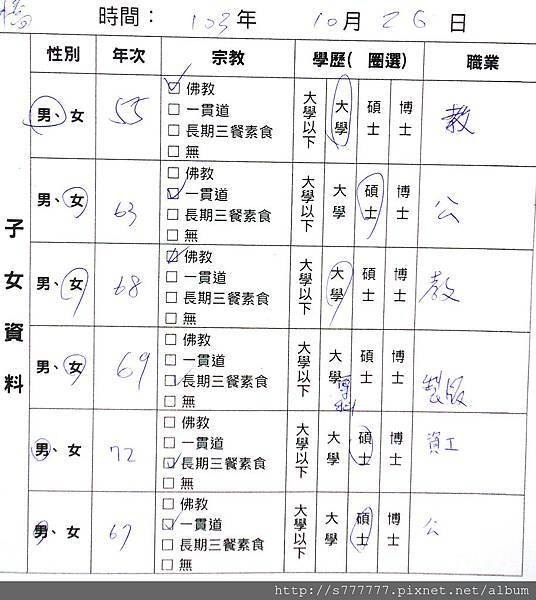 時間： 103年 10月 26日
性別 年次 宗教 學歷( 圈選) 職業
子女資料
男、女 55 ☑佛教 大學以下 大學 碩士 博士 教
□一貫道
□長期三餐素食
□無
男、女 63 □佛教 大學以下 大學 碩士 博士 公
☑一貫道
□長期三餐素食
□無
男、女 68 ☑佛教 大學以下 大學 碩士 博士 教
□一貫道
□長期三餐素食
□無
男、女 69 □佛教 大學以下 大學 碩士 博士 製版
□一貫道 專科
☑長期三餐素食
□無
男、女 72 □佛教 大學以下 大學 碩士 博士 資工
□一貫道
☑長期三餐素食
□無
男、女 67 □佛教 大學以下 大學 碩士 博士 公
☑一貫道
□長期三餐素食
□無
http://s777777.pixnet.net/album